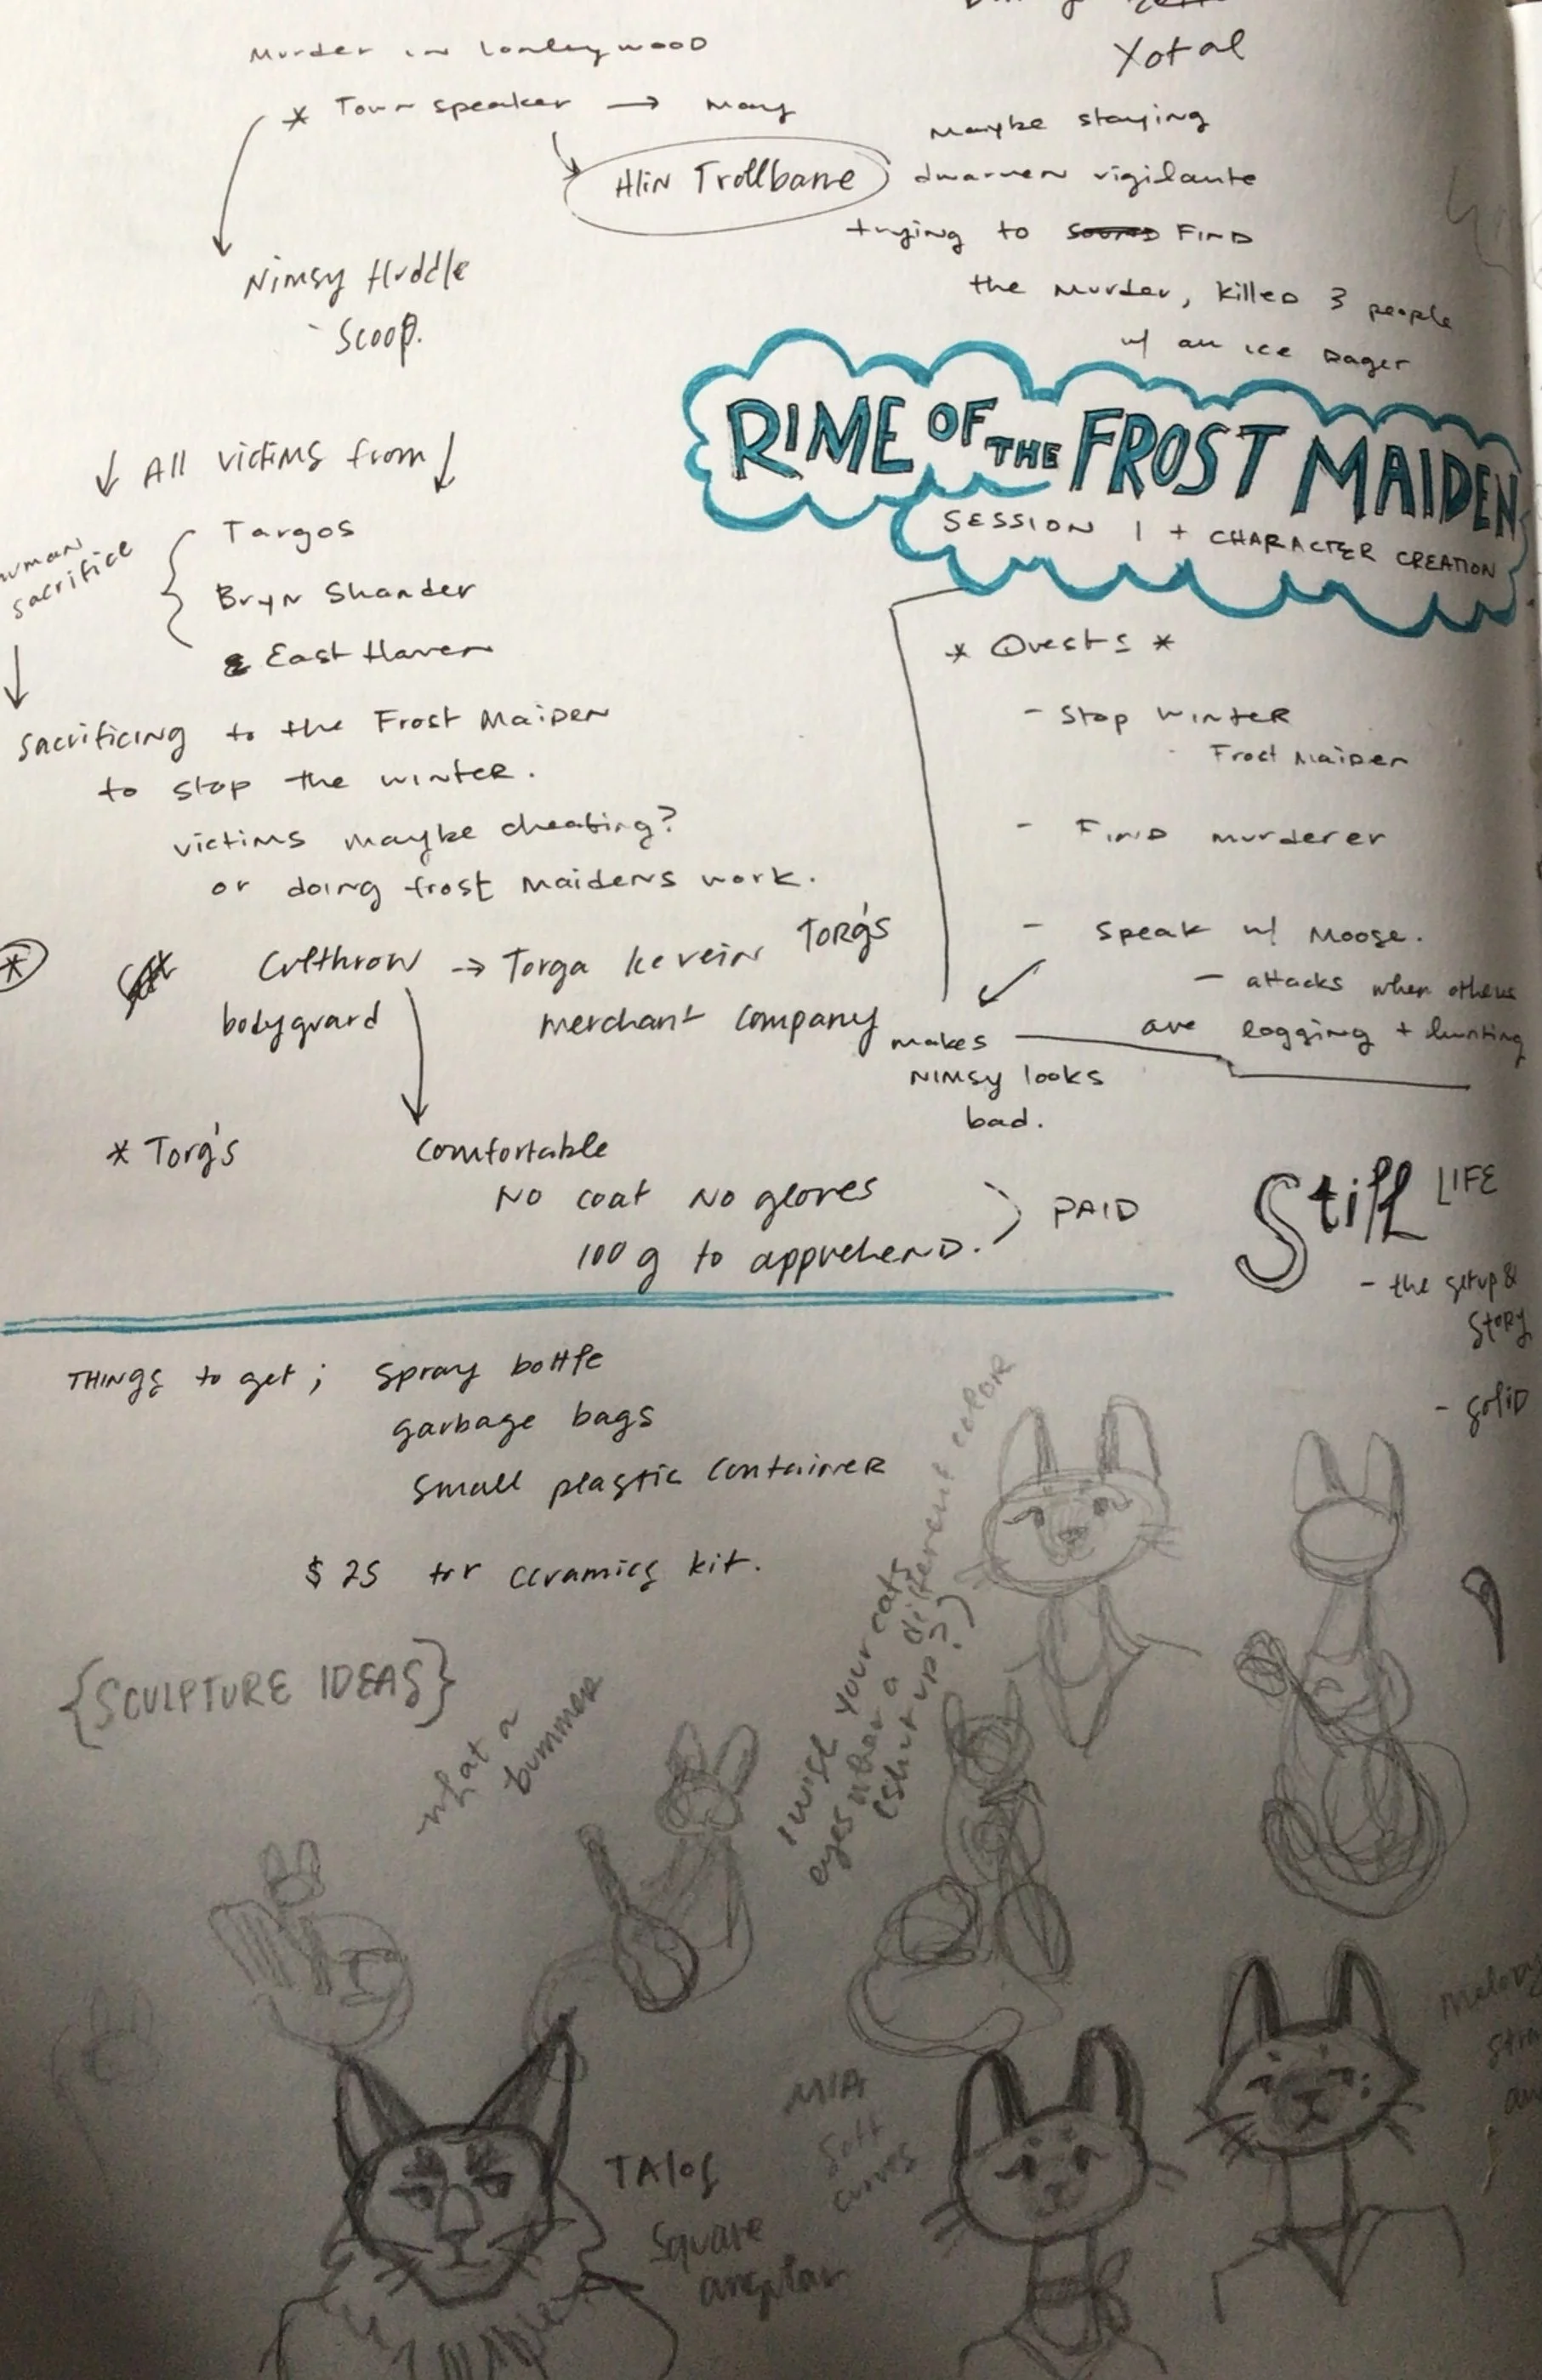 Yotal
Murder in Lonleywood
* Town speaker → Many
Hlin Trollbane
Maybe staying
dwarven vigilante
trying to FIND
the murder, killed 3 people
w/ an ice Dager
Nimsy Huddle
- Scoop.
RIME OF THE FROST MAIDEN
SESSION 1 + CHARACTER CREATION
↓ All victims from ↓
Targos
Bryn Shander
& East Haven
sacrifice
Sacrificing to the Frost Maiden
to stop the winter.
victims maybe cheating?
or doing frost maidens work.
* Quests *
- Stop winter
- Frost Maiden
- Find murderer
- Speak w/ Moose.
- attacks when others
are logging + hunting
makes
Nimsy looks
bad.
* Culthrow → Torga Kevein Torg's
bodyguard merchant company
* Torg's
Comfortable
No coat No gloves
100 g to apprehend.
PAID
Still LIFE
- the setup &
story
- solid
THINGS to get; Spray bottle
garbage bags
small plastic container
$ 25 for ceramics kit.
{SCULPTURE IDEAS}
what a
bummer
I wish your cats
eyes wher a different color
(shut up?)
TAlos
Square
angular
MIA
Soft
curves